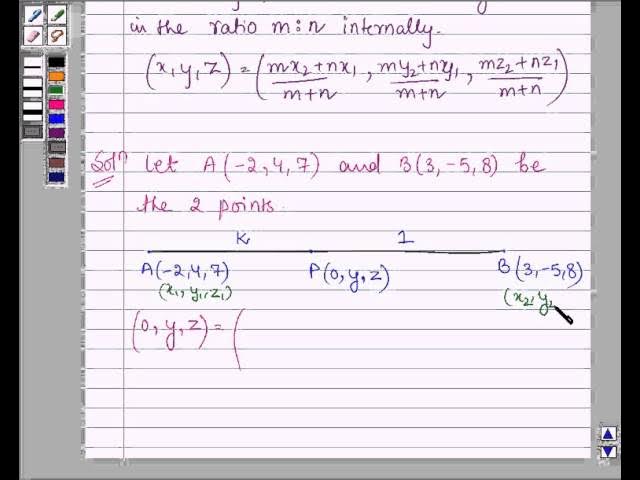 in the ratio m:n internally.
(x, y, z) = (mx₂+nx₁/m+n, my₂+ny₁/m+n, mz₂+nz₁/m+n)
Solⁿ Let A(-2,4,7) and B(3,-5,8) be
the 2 points.
K 1
A(-2,4,7) P(0,y,z) B(3,-5,8)
(x₁, y₁, z₁) (x₂, y₂
(0, y, z) = (